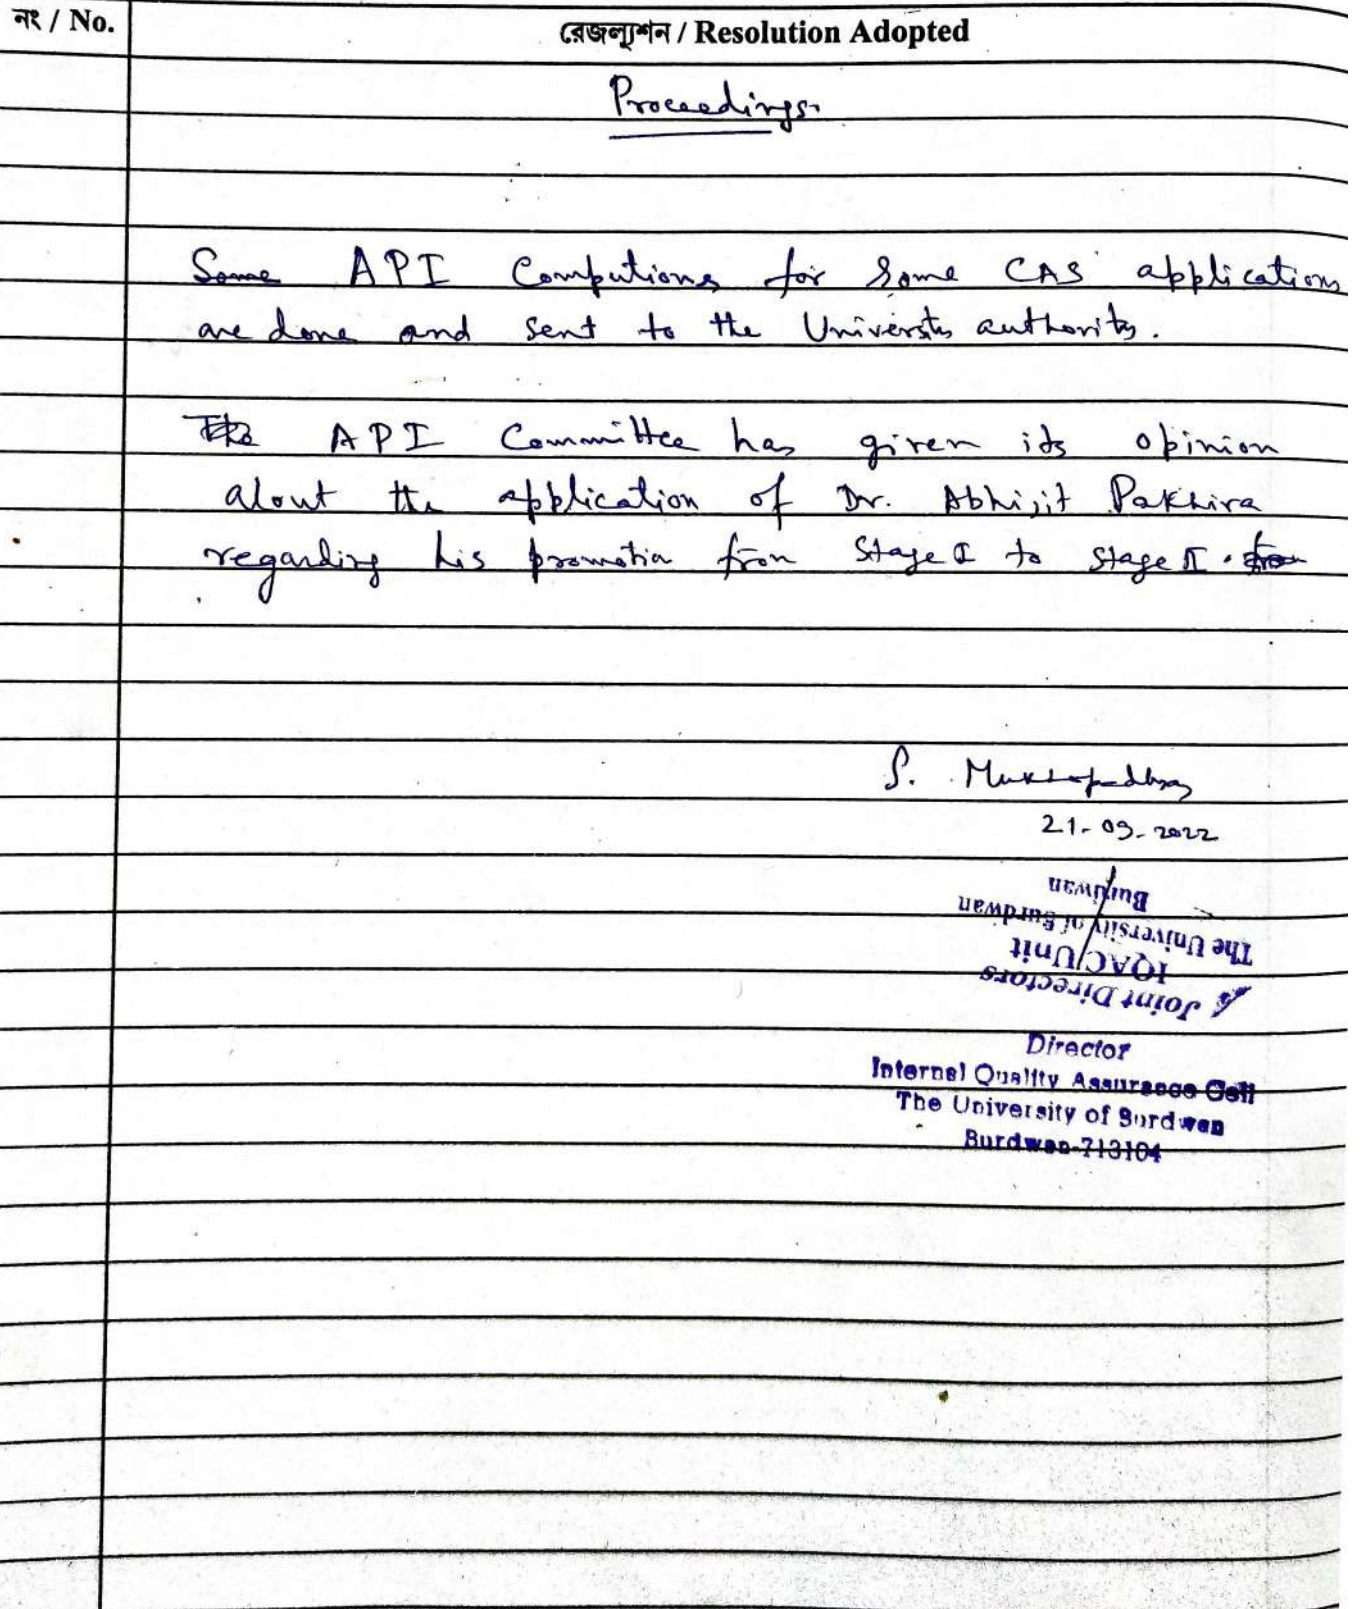 নং / No.
রেজল্যুশন / Resolution Adopted
Proceedings.
Some API Computions for some CAS applications
are done and sent to the University authority.
The API Committee has given its opinion
about the application of Dr. Abhijit Pakhira
regarding his promotion from Stage I to Stage II.
S. Mukhopadhyay
21-09-2022
Joint Directors
IQAC/Unit
The University of Burdwan
Burdwan
Director
Internal Quality Assurance Cell
The University of Burdwan
Burdwan-713104